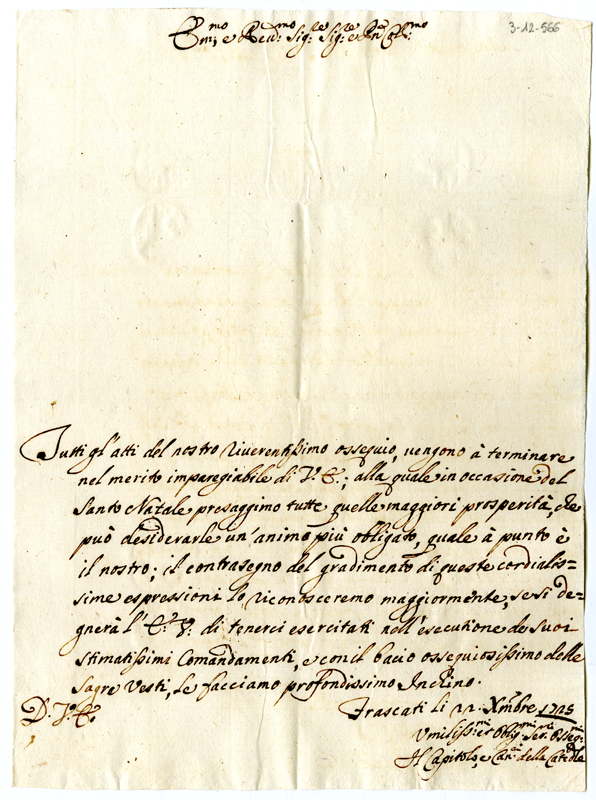 3-12-566
Em:mo e Rev:mo Sig:re Sig:re e Pne Col:mo
Tutti gl'atti del nostro riverentissimo ossequio, vengono à terminare
nel merito impareģiabile di V.E.; alla quale in occasione del
Santo Natale presaggimo tutte quelle maggiori prosperità, che
può desiderarle un'animo più obligato, quale à punto è
il nostro; il contrasegno del gradimento di queste cordialis=
sime espressioni lo riconosceremo maggiormente, se si de=
gnerà l'E.V. di tenerci esercitati nell'esecutione de suoi
stimatissimi Comandamenti, e con il bacio ossequiosissimo delle
Sagre Vesti, le facciamo profondissimo Inchino.
D.V.E.
Frascati li 22 Xmbre 1725
Umiliss:mi et Obligmi Ser:ri Osseq:mi
Il Capitolo, e Can:ci della Catedle